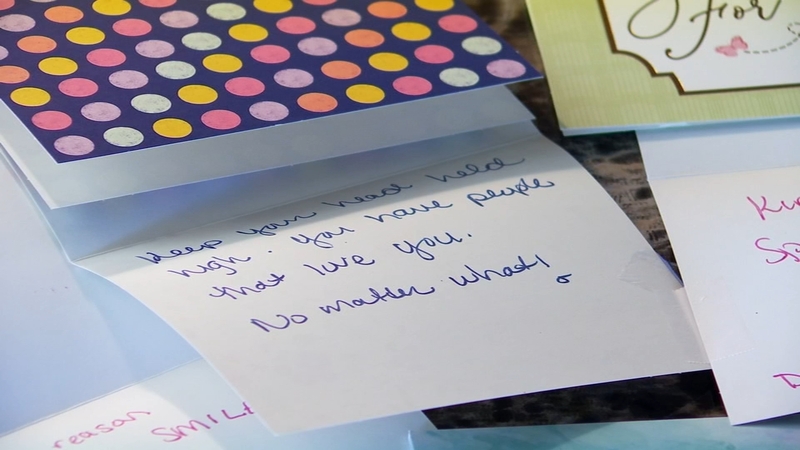 For
Keep your head held
high. You have people
that love you.
No matter what!
reasan
SMILE